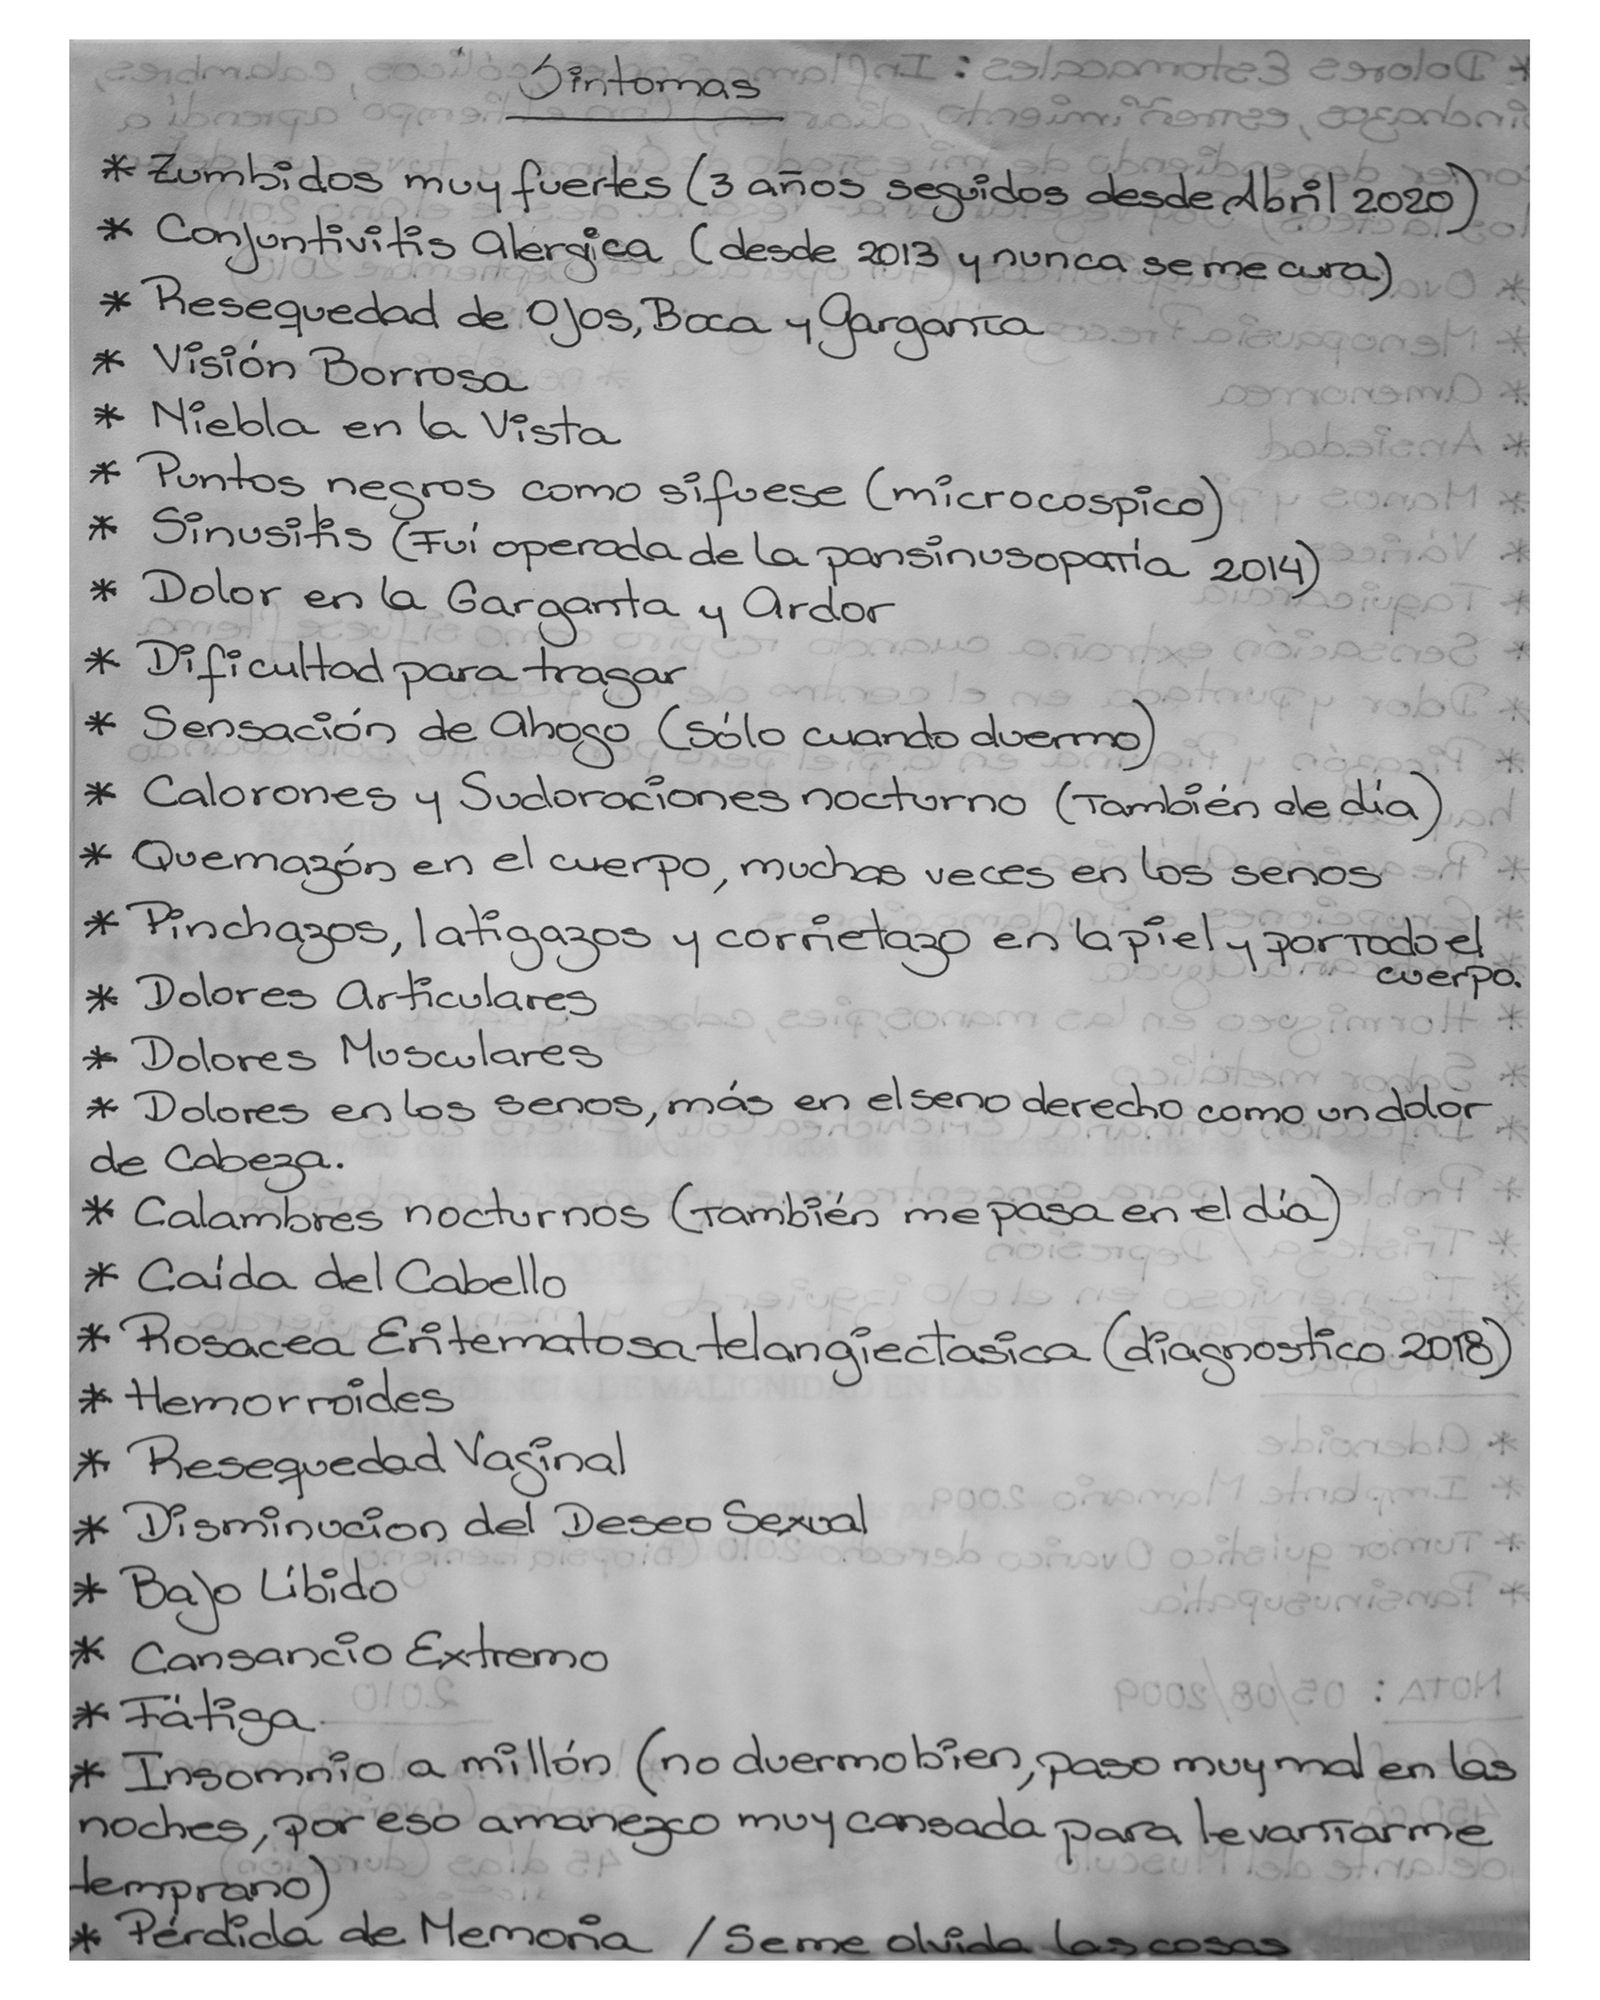 Síntomas
* Zumbidos muy fuertes (3 años seguidos desde Abril 2020)
* Conjuntivitis Alérgica (desde 2013 y nunca se me cura)
* Resequedad de Ojos, Boca y Garganta
* Visión Borrosa
* Niebla en la Vista
* Puntos negros como si fuese (microcospico)
* Sinusitis (Fuí operada de la pansinusopatía 2014)
* Dolor en la Garganta y Ardor
* Dificultad para tragar
* Sensación de ahogo (sólo cuando duermo)
* Calorones y Sudoraciones nocturno (También de día)
* Quemazón en el cuerpo, muchas veces en los senos
* Pinchazos, latigazos y corrietazo en la piel y por todo el
cuerpo.
* Dolores Articulares
* Dolores Musculares
* Dolores en los senos, más en el seno derecho como un dolor
de Cabeza.
* Calambres nocturnos (También me pasa en el día)
* Caída del Cabello
* Rosacea Eritematosa telangiectasica (diagnostico 2018)
* Hemorroides
* Resequedad Vaginal
* Disminucion del Deseo Sexual
* Bajo Líbido
* Cansancio Extremo
* Fátiga
* Insomnio a millón (no duermo bien, paso muy mal en las
noches, por eso amanezco muy cansada para levantarme
temprano)
* Pérdida de Memoria / Se me olvida las cosas